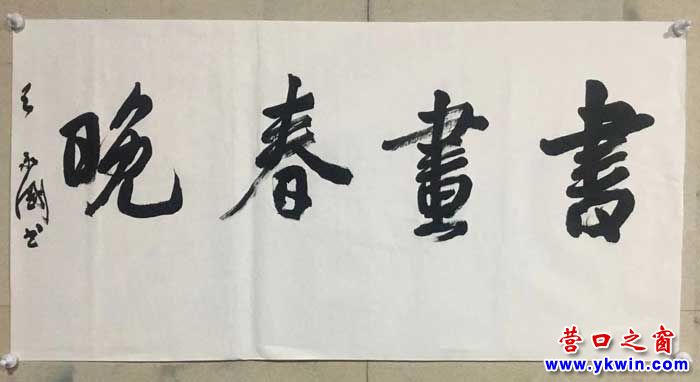 書畫春晚
书
营口之窗
www.ykwin.com